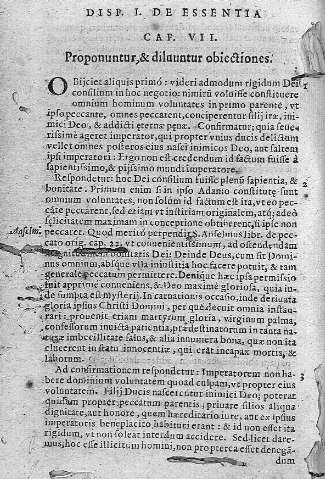 DISP. I. DE ESSENTIA
CAP. VII.
Proponuntur, & diluuntur obiectiones.
OBijciet aliquis primò: videri admodum rigidum Dei
consilium in hoc negotio: nimirũ voluisse constituere
omnium hominum voluntates in primo parente, vt
ipso peccante, omnes peccarent, conciperentur filij iræ, ini-
mici Deo, & addicti æternæ pœnæ. Confirmatur; quia seue-
rissimè ageret imperator, qui propter vnius ducis delictum
vellet omnes posteros eius nasci inimicos Deo, aut saltem
ipsi imperatori: Ergo non est credendum id factum fuisse à
sapientissimo, & pijssimo mundi imperatore.
Respondetur hoc Dei consilium fuisse plenũ sapientia, &
bonitate. Primum enim si in ipso Adamo constitutę sunt
omnium voluntates, non solùm id factum est ita, vt eo pec-
cante peccarent, sed etiam vt iustitiam originalem, atq; adeò
felicitatem maximam in conceptione obtinerent, si ipse non
peccaret. Quod meritò perpendit Anselmus lib. de pec-
Anselm.
cato orig. cap. 22. vt conuenientissimum, ad ostendendam
magnitudinem bonitatis Dei. Deinde Deus, cum sit Domi-
nus omnium, absque vlla iniustitia hoc facere potuit, & tam
generale peccatum permittere. Denique hæc ipsa permissio
fuit apprimè conueniens, & Deo maximè gloriosa, quia in-
de sumpta est mysterij Incarnationis occasio, inde deriuata
gloria ipsius Christi Domini, per quẽ decuit omnia instau-
rari: prouenit etiam martyrum gloria, virginum palma,
confessorum inuicta patientia, prædestinatorum in tanta na-
turæ imbecillitate salus, & alia innumera bona, quæ non ita
elucerent in statu innocentiæ, qui erat incapax mortis, &
laborum.
Ad confirmationem respondetur: Imperatorem non ha-
bere dominium voluntatem quoad culpam, vt propter eius
voluntatem, filij Ducis nascerentur inimici Deo; poterat
quidem propter peccatum parentis, priuare filios aliqua
dignitate, aut honore, quem hæreditario iure, aut ex ipsius
imperatoris beneplacito habituri erant: & id non esset ita
rigidum, vt non soleat interdum accidere. Sed licet dare-
mus, hoc esse illicitum homini, non propterea esset denegã-
dum